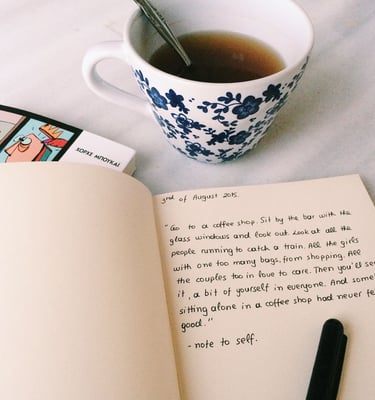 ΧΟΡΧΕ ΜΠΟΥΚΑΪ
3rd of August 2015.
"Go to a coffee shop. Sit by the bar with the
glass windows and look out. Look at all the
people running to catch a train. All the girls
with one too many bags, from shopping. All
the couples too in love to care. Then you'll see
it, a bit of yourself in everyone. And some
sitting alone in a coffee shop had never fe
good."
- note to self.